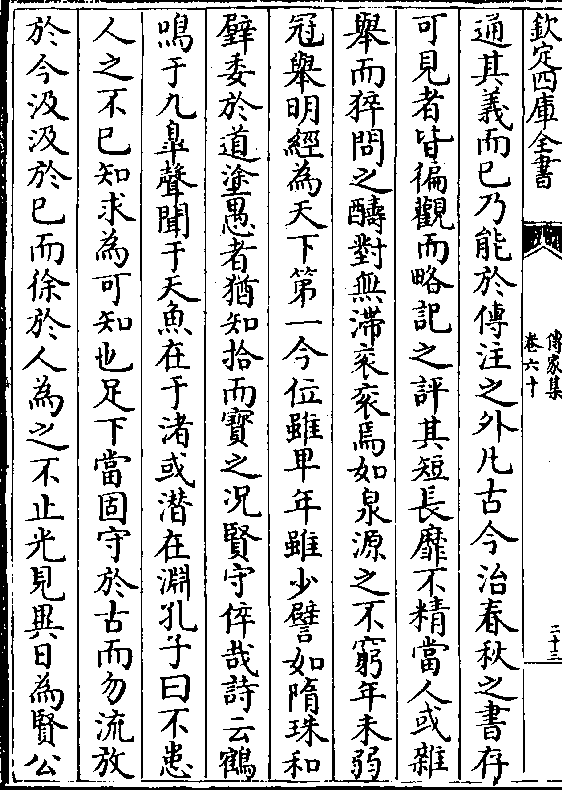 欽定四庫全書
傳家集
卷六十
二十三
通其義而已乃能於傳注之外凡古今治春秋之書存
可見者皆徧觀而略記之評其短長靡不精當人或雜
舉而猝問之酬對無滯衮衮焉如泉源之不窮年未弱
冠舉明經為天下第一今位雖卑年雖少譬如隋珠和
璧委於道塗愚者猶知拾而寶之况賢守倅哉詩云鶴
鳴于九臯聲聞于天魚在于渚或潜在淵孔子曰不患
人之不已知求為可知也足下當固守於古而勿流放
於今汲汲於已而徐於人為之不止光見異日為賢公